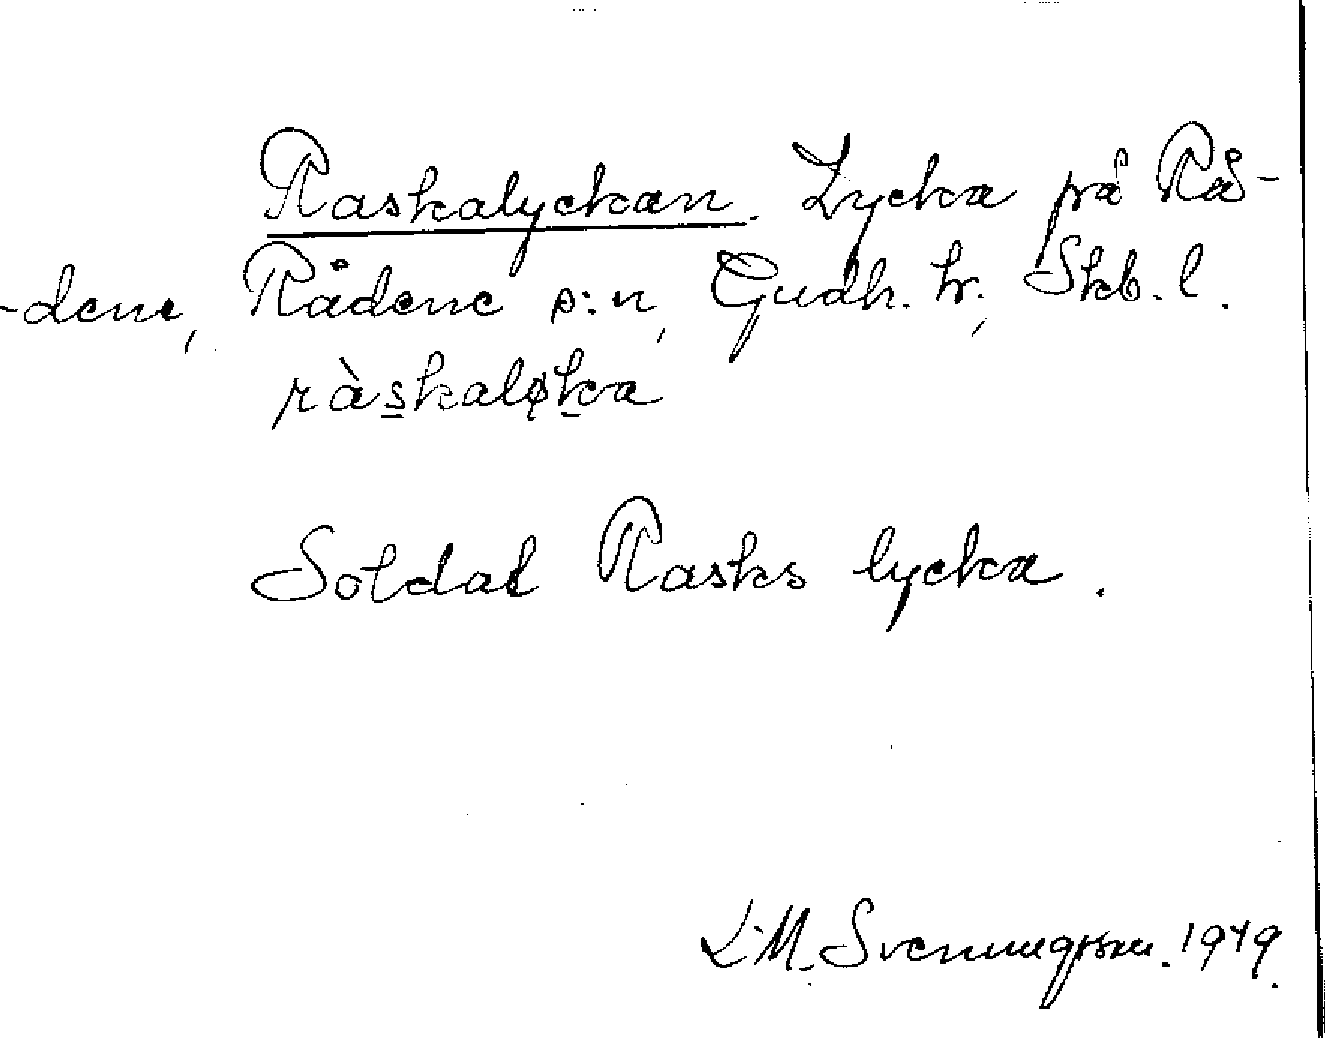 Raskalyckan. Lycka på Rå-
-dene, Rådene s:n, Gudh. hr, Skb. l.
ràskaløka
Soldat Rasks lycka.
L.M. Svenungsson. 1949.